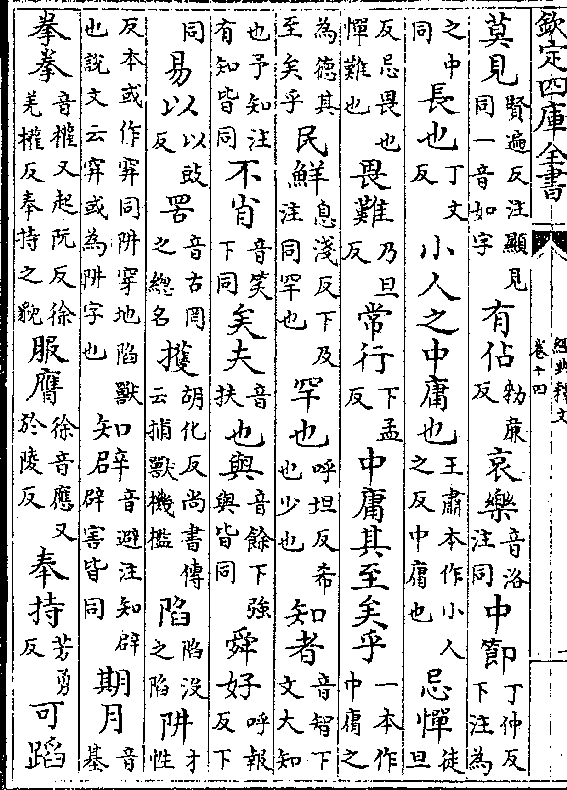 欽定四庫全書
經典釋文
卷十四
莫見賢遍反注顯見同一音如字有佔勑廉反哀樂音洛注同中節丁仲反下注為
之中同長也丁丈反小人之中庸也王肅本作小人之反中庸也忌憚徒旦
反忌畏也憚難也畏難乃旦反常行下孟反中庸其至矣乎一本作中庸之
為德其至矣乎民鮮息淺反下及注同罕也罕也呼坦反希也少也知者音智下文大知
也予知注有知皆同不肖音笑下同矣夫音扶也與音餘下強與皆同舜好呼報反下
同易以以豉反罟音古罔之緫名擭胡化反尚書傳云捕獸機檻陷陷沒之陷阱才性
反本或作穽同阱穿地陷獸也說文云穽或為阱字也知辟音避注知辟辟害皆同期月音基
拳拳音權又起阮反徐羌權反奉持之貌服膺徐音應又於陵反奉持芳勇反可蹈